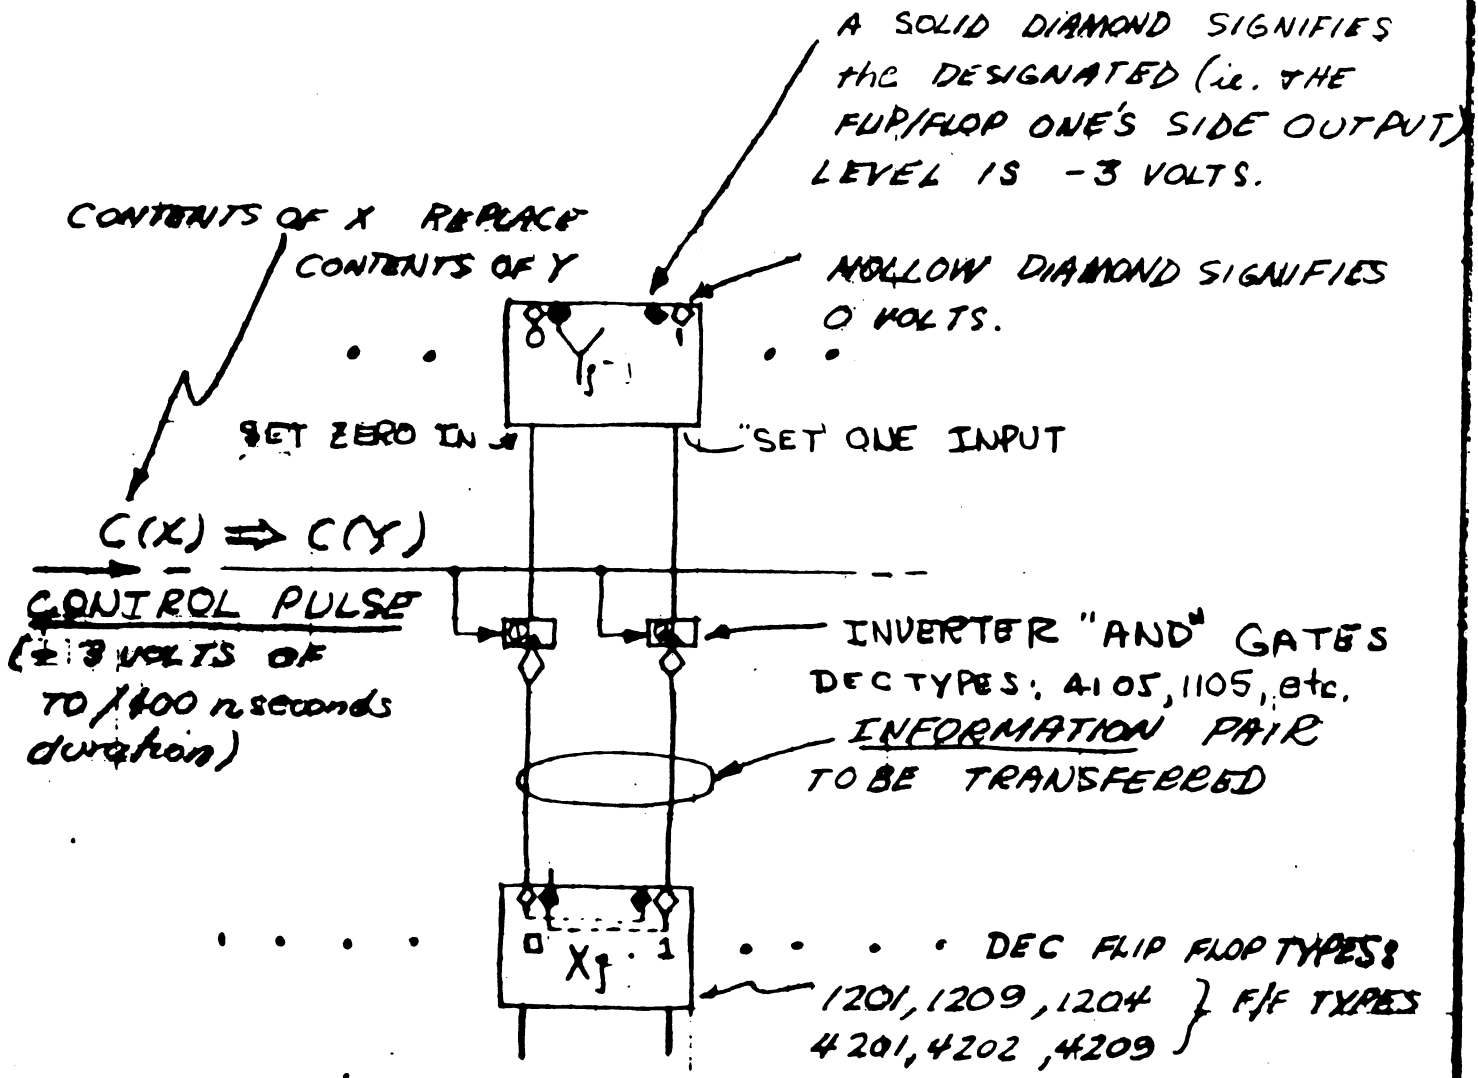 A SOLID DIAMOND SIGNIFIES
the DESIGNATED (ie. THE
FLIP/FLOP ONE'S SIDE OUTPUT)
LEVEL IS -3 VOLTS.
CONTENTS OF X REPLACE
CONTENTS OF Y
HOLLOW DIAMOND SIGNIFIES
0 VOLTS.
0 1
Yj
SET ZERO IN
"SET" ONE INPUT
C(X) ⇒ C(Y)
CONTROL PULSE
3 VOLTS OF
TO 400 nseconds
duration)
INVERTER "AND" GATES
DEC TYPES: 4105, 1105, etc.
INFORMATION PAIR
TO BE TRANSFERRED
0 1
Xj
DEC FLIP FLOP TYPES:
1201, 1209, 1204 } F/F TYPES
4201, 4202, 4209